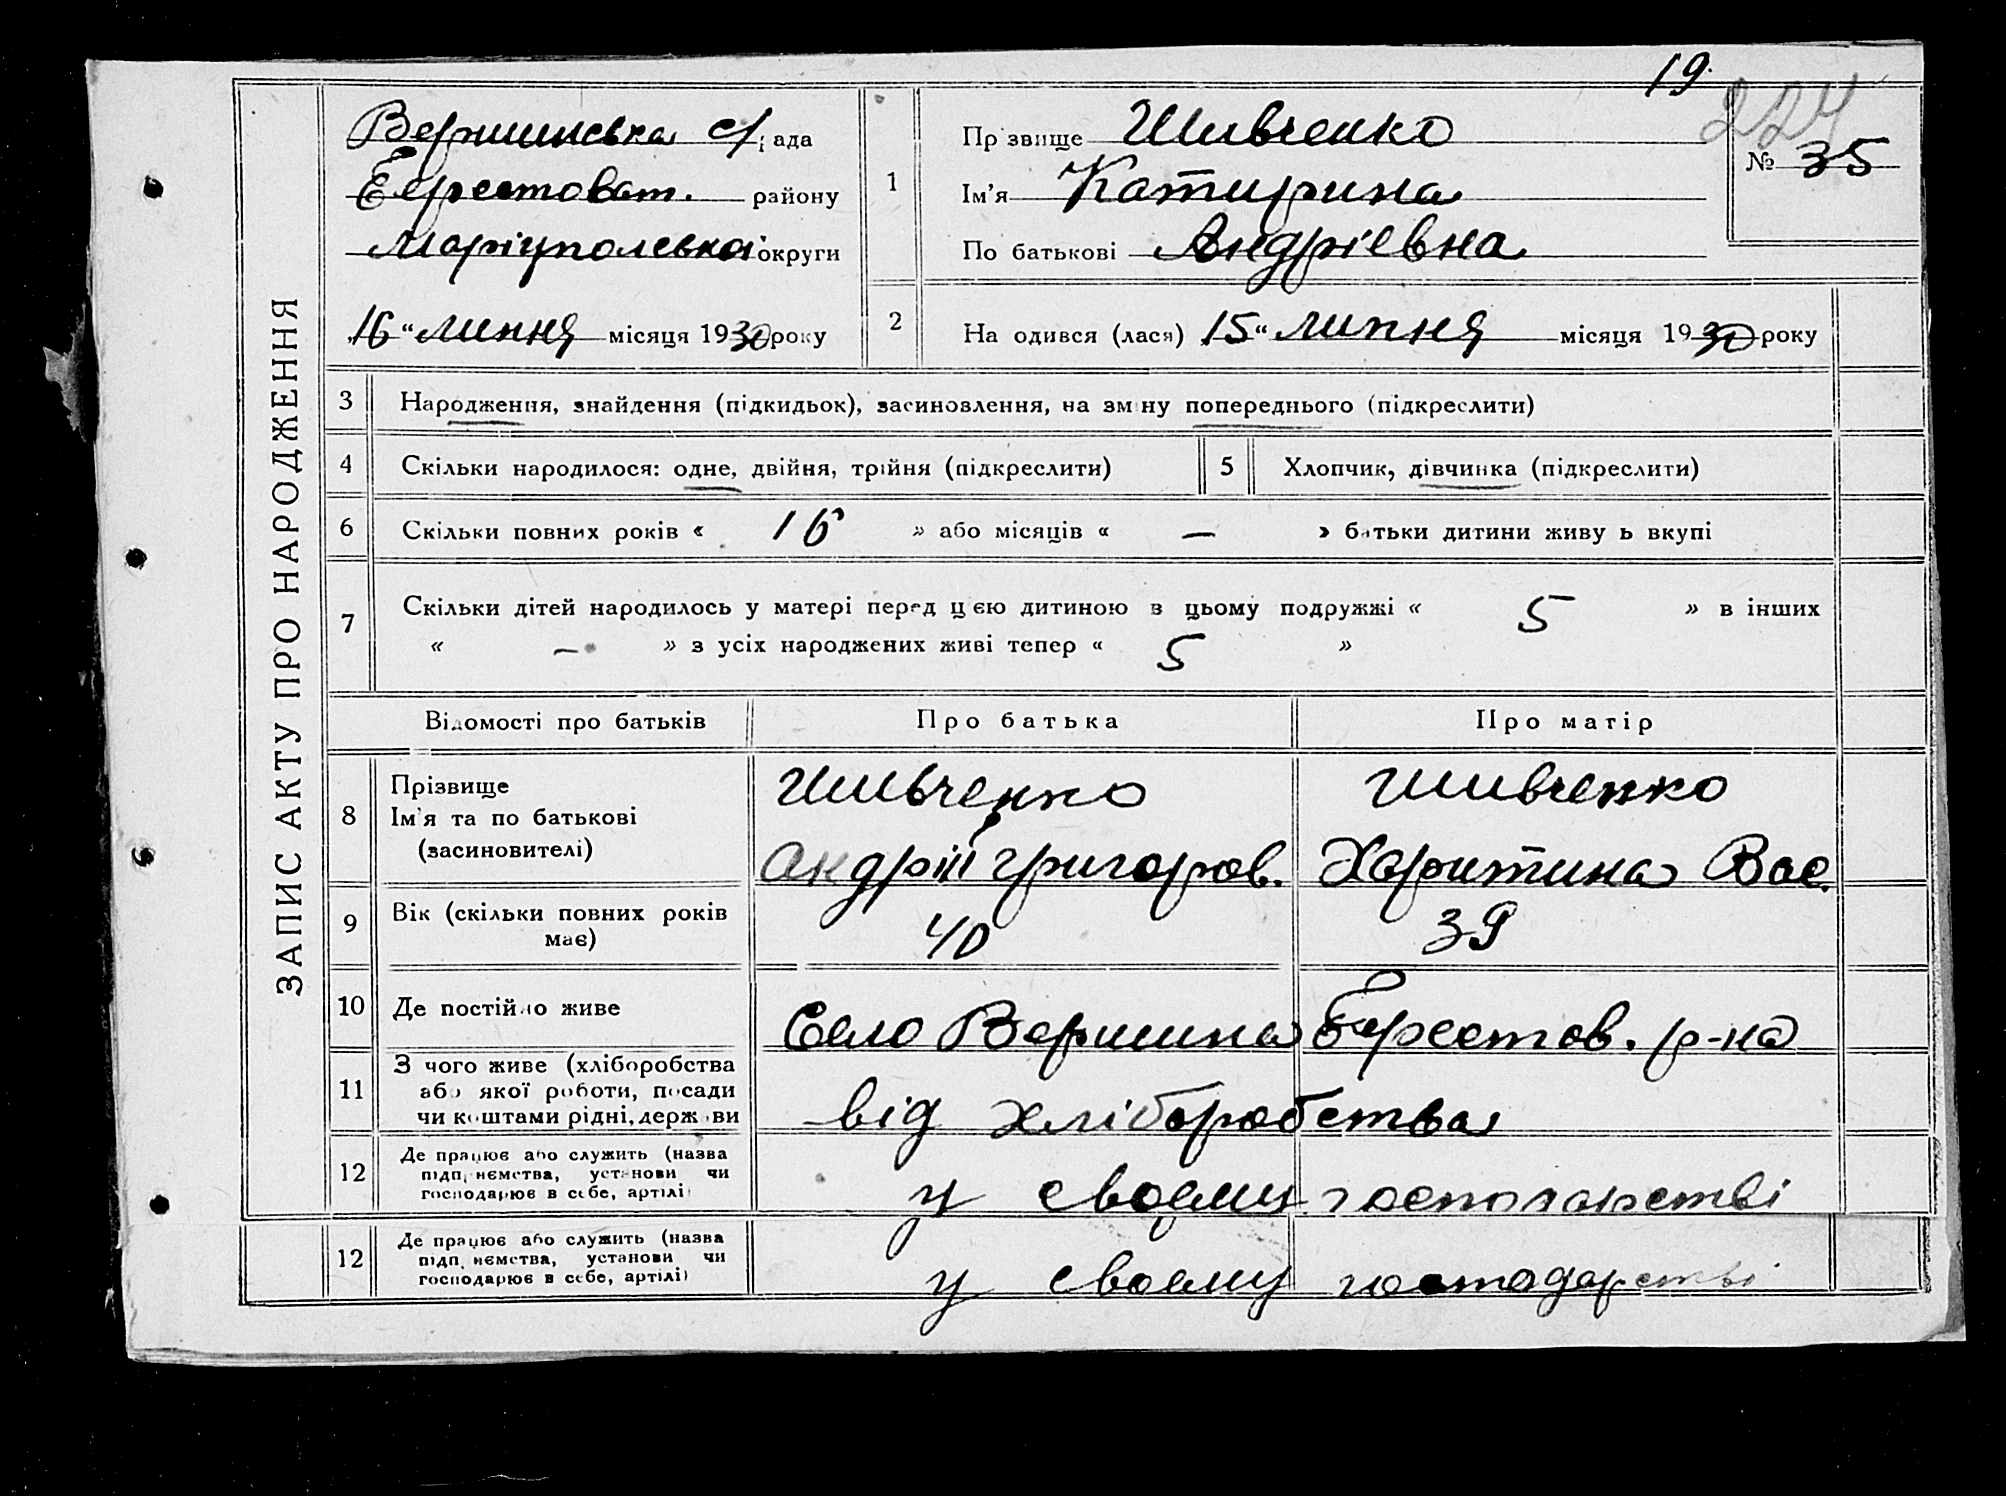 19.
224
ЗАПИС АКТУ ПРО НАРОДЖЕННЯ
Вершинська с/рада
Берестоват. району
Маріупольської округи
16 " липня місяця 1930 року
1
Прізвище Шивченко
Ім'я Катирина
По батькові Андріевна
№ 35
2 На одився (лася) 15 " липня місяця 1930 року
3 Народження, знайдення (підкидьок), засиновлення, на зміну попереднього (підкреслити)
4 Скільки народилося: одне, двійня, трійня (підкреслити) 5 Хлопчик, дівчинка (підкреслити)
6 Скільки повних років « 16 » або місяців « — » батьки дитини живуть вкупі
7 Скільки дітей народилось у матері перед цією дитиною в цьому подружжі « 5 » в інших
« — » з усіх народжених живі тепер « 5 »
Відомості про батьків Про батька Про матір
8 Прізвище
Ім'я та по батькові
(засиновителі)
Шивченко
Андрій Григоров.
Шивченко
Харитина Вас.
9 Вік (скільки повних років
має)
40 39
10 Де постійно живе Село Вершина Берестов. р-на
11 З чого живе (хліборобства
або якої роботи, посади
чи коштами рідні, держави
від хліборобства
12 Де працює або служить (назва
підприємства, установи чи
господарює в себе, артілі)
у своему господарстві
12 Де працює або служить (назва
підприємства, установи чи
господарює в себе, артілі)
у своему господарстві